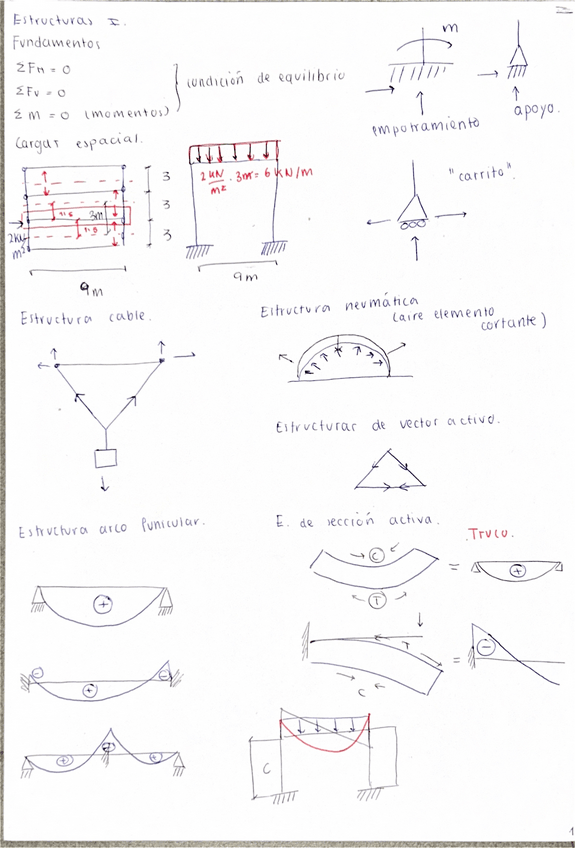 Estructuras I.
Fundamentos
ΣFH = 0
ΣFV = 0
ΣM = 0 (momentos)
condición de equilibrio
m
empotramiento
apoyo.
Cargas espacial.
3
3
3
3m
1.5
1.5
2KN
m²
9m
2 KN/m² . 3m = 6 KN/m
9m
"carrito".
Estructura cable.
Estructura neumática
(aire elemento
cortante)
Estructuras de vector activo.
Estructura arco funicular.
E. de sección activa.
Truco.
C
T
=
+
+
-
-
+
+
+
T
C
=
-
C
1